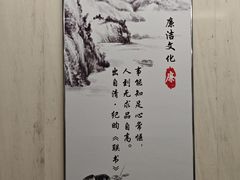 廉洁文化
廉
事能知足心常惬，
人到无求品自高。
出自清·纪昀《联书》